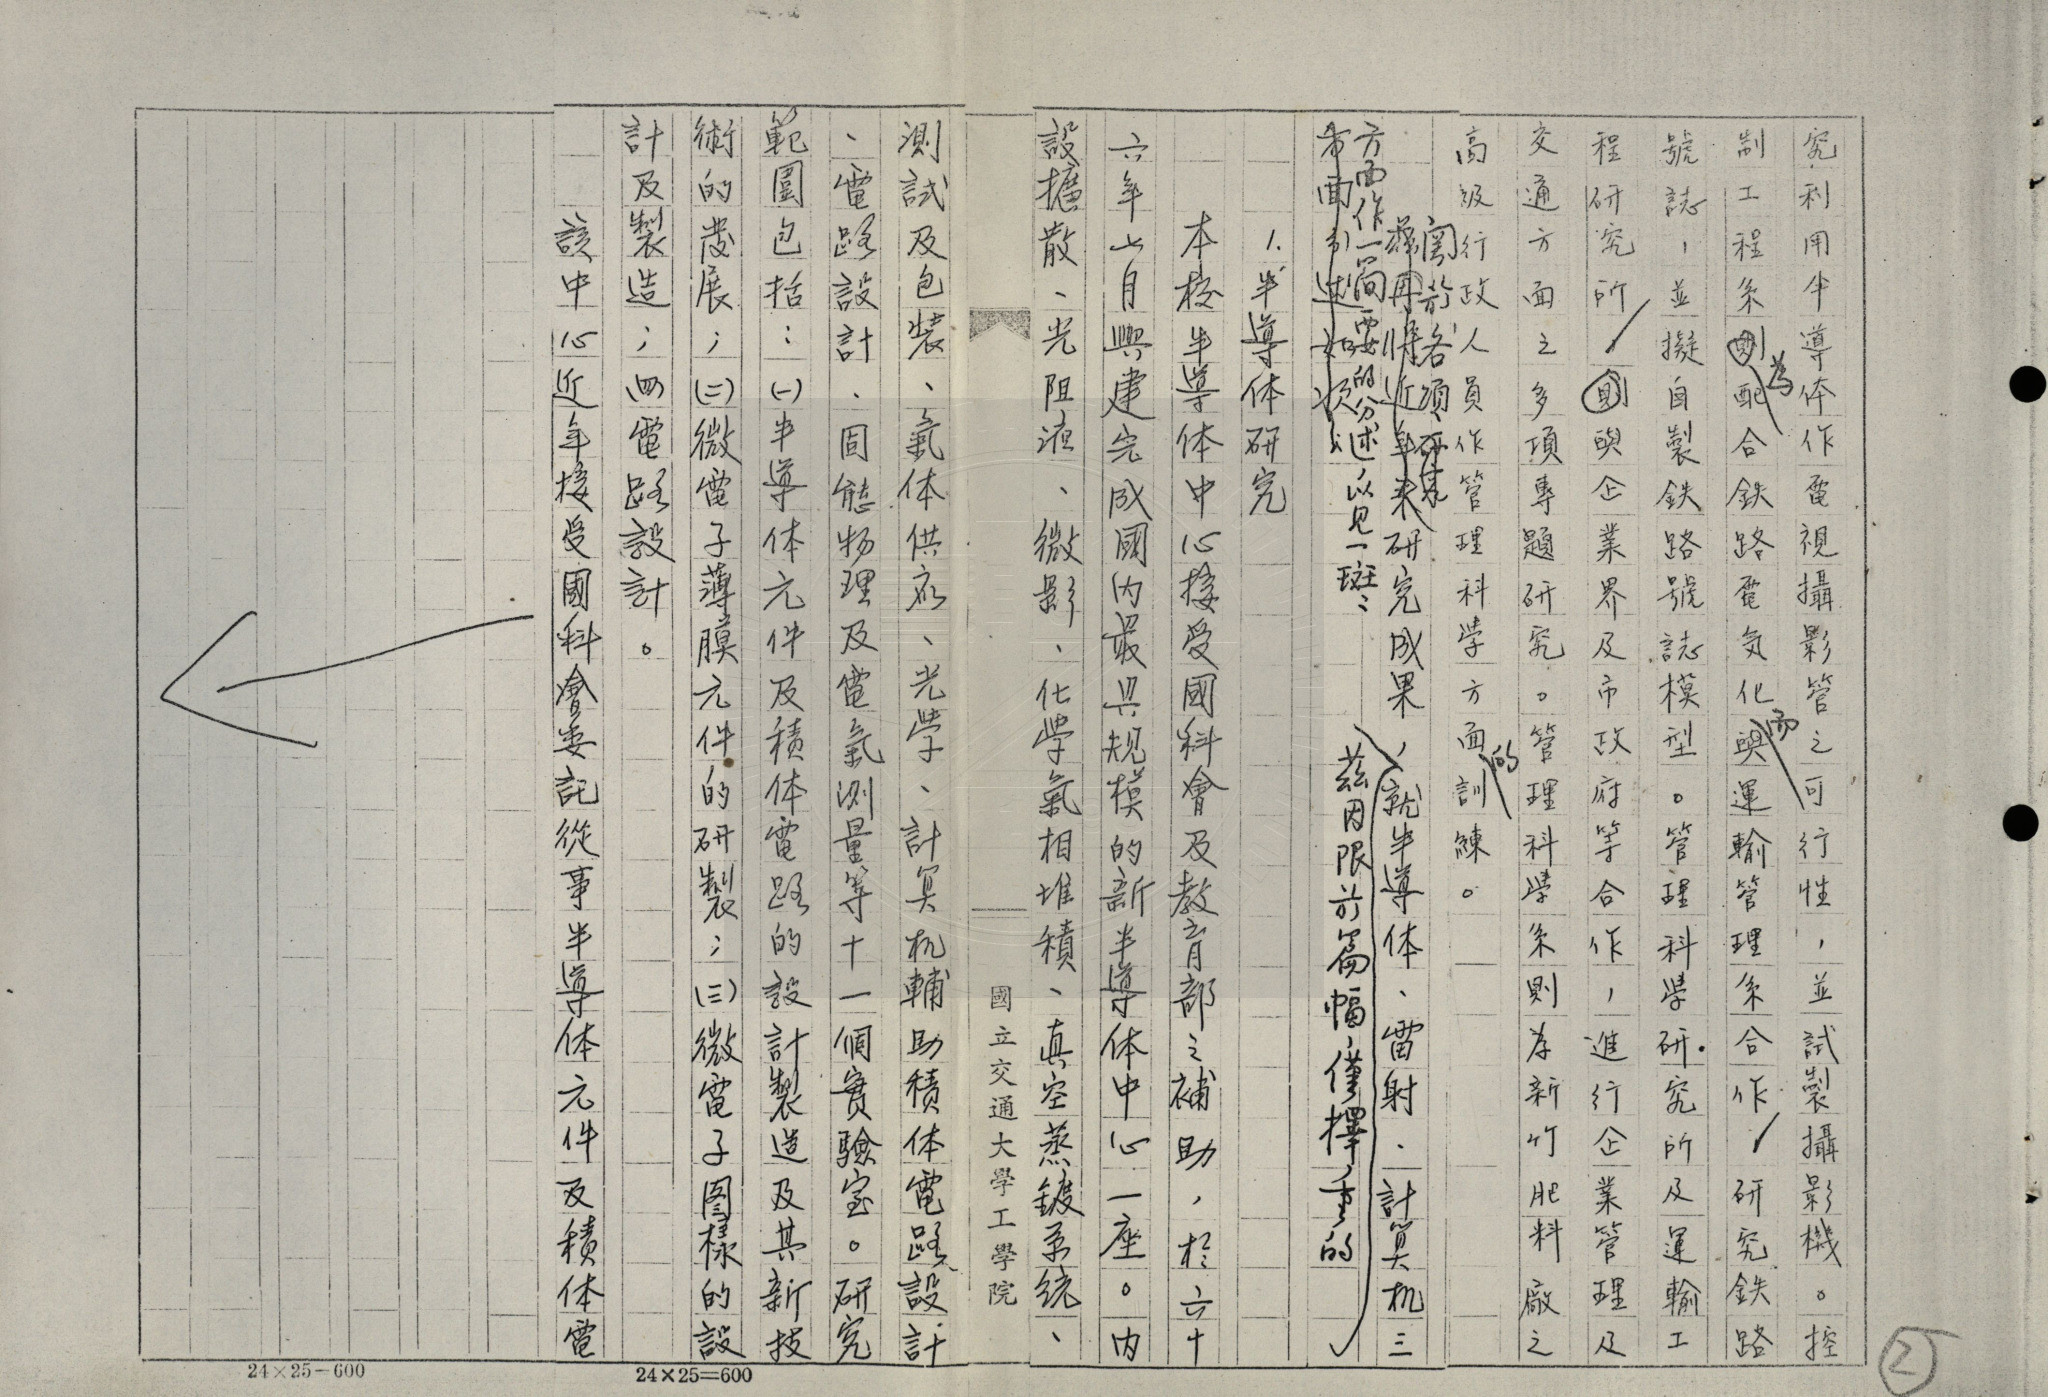 究利用半導体作電視攝影管之可行性，並試製攝影機。控
制工程系則為配合鉄路電気化與而運輸管理系合作，研究鉄路
號誌，並擬自製鉄路號誌模型。管理科學研究所及運輸工
程研究所，則與企業界及市政府等合作，進行企業管理及
交通方面之多項專題研究。管理科學系則為新竹肥料廠之
高級行政人員作管理科學方面的訓練。
關於各項研究
茲再將近年來研究成果，就半導体、雷射、計算机三
方面作一簡要的分述，以見一斑：
茲因限於篇幅，僅擇重的
1.半導体研究
本校半導体中心接受國科會及教育部之補助，於六十
六年七月興建完成國内最具規模的新半導体中心一座。内
設擴散、光阻液、微影、化學氣相堆積、真空蒸鍍系統、
國立交通大學工學院
測試及包裝、氣体供应、光學、計算机輔助積体電路設計
、電路設計、固態物理及電氣測量等十一個實驗室。研究
範圍包括：㈠半導体元件及積体電路的設計製造及其新技
術的發展；㈡微電子薄膜元件的研製；㈢微電子图樣的設
計及製造；四電路設計。
該中心近年接受國科會委託從事半導体元件及積体電
24×25=600
24×25=600
2